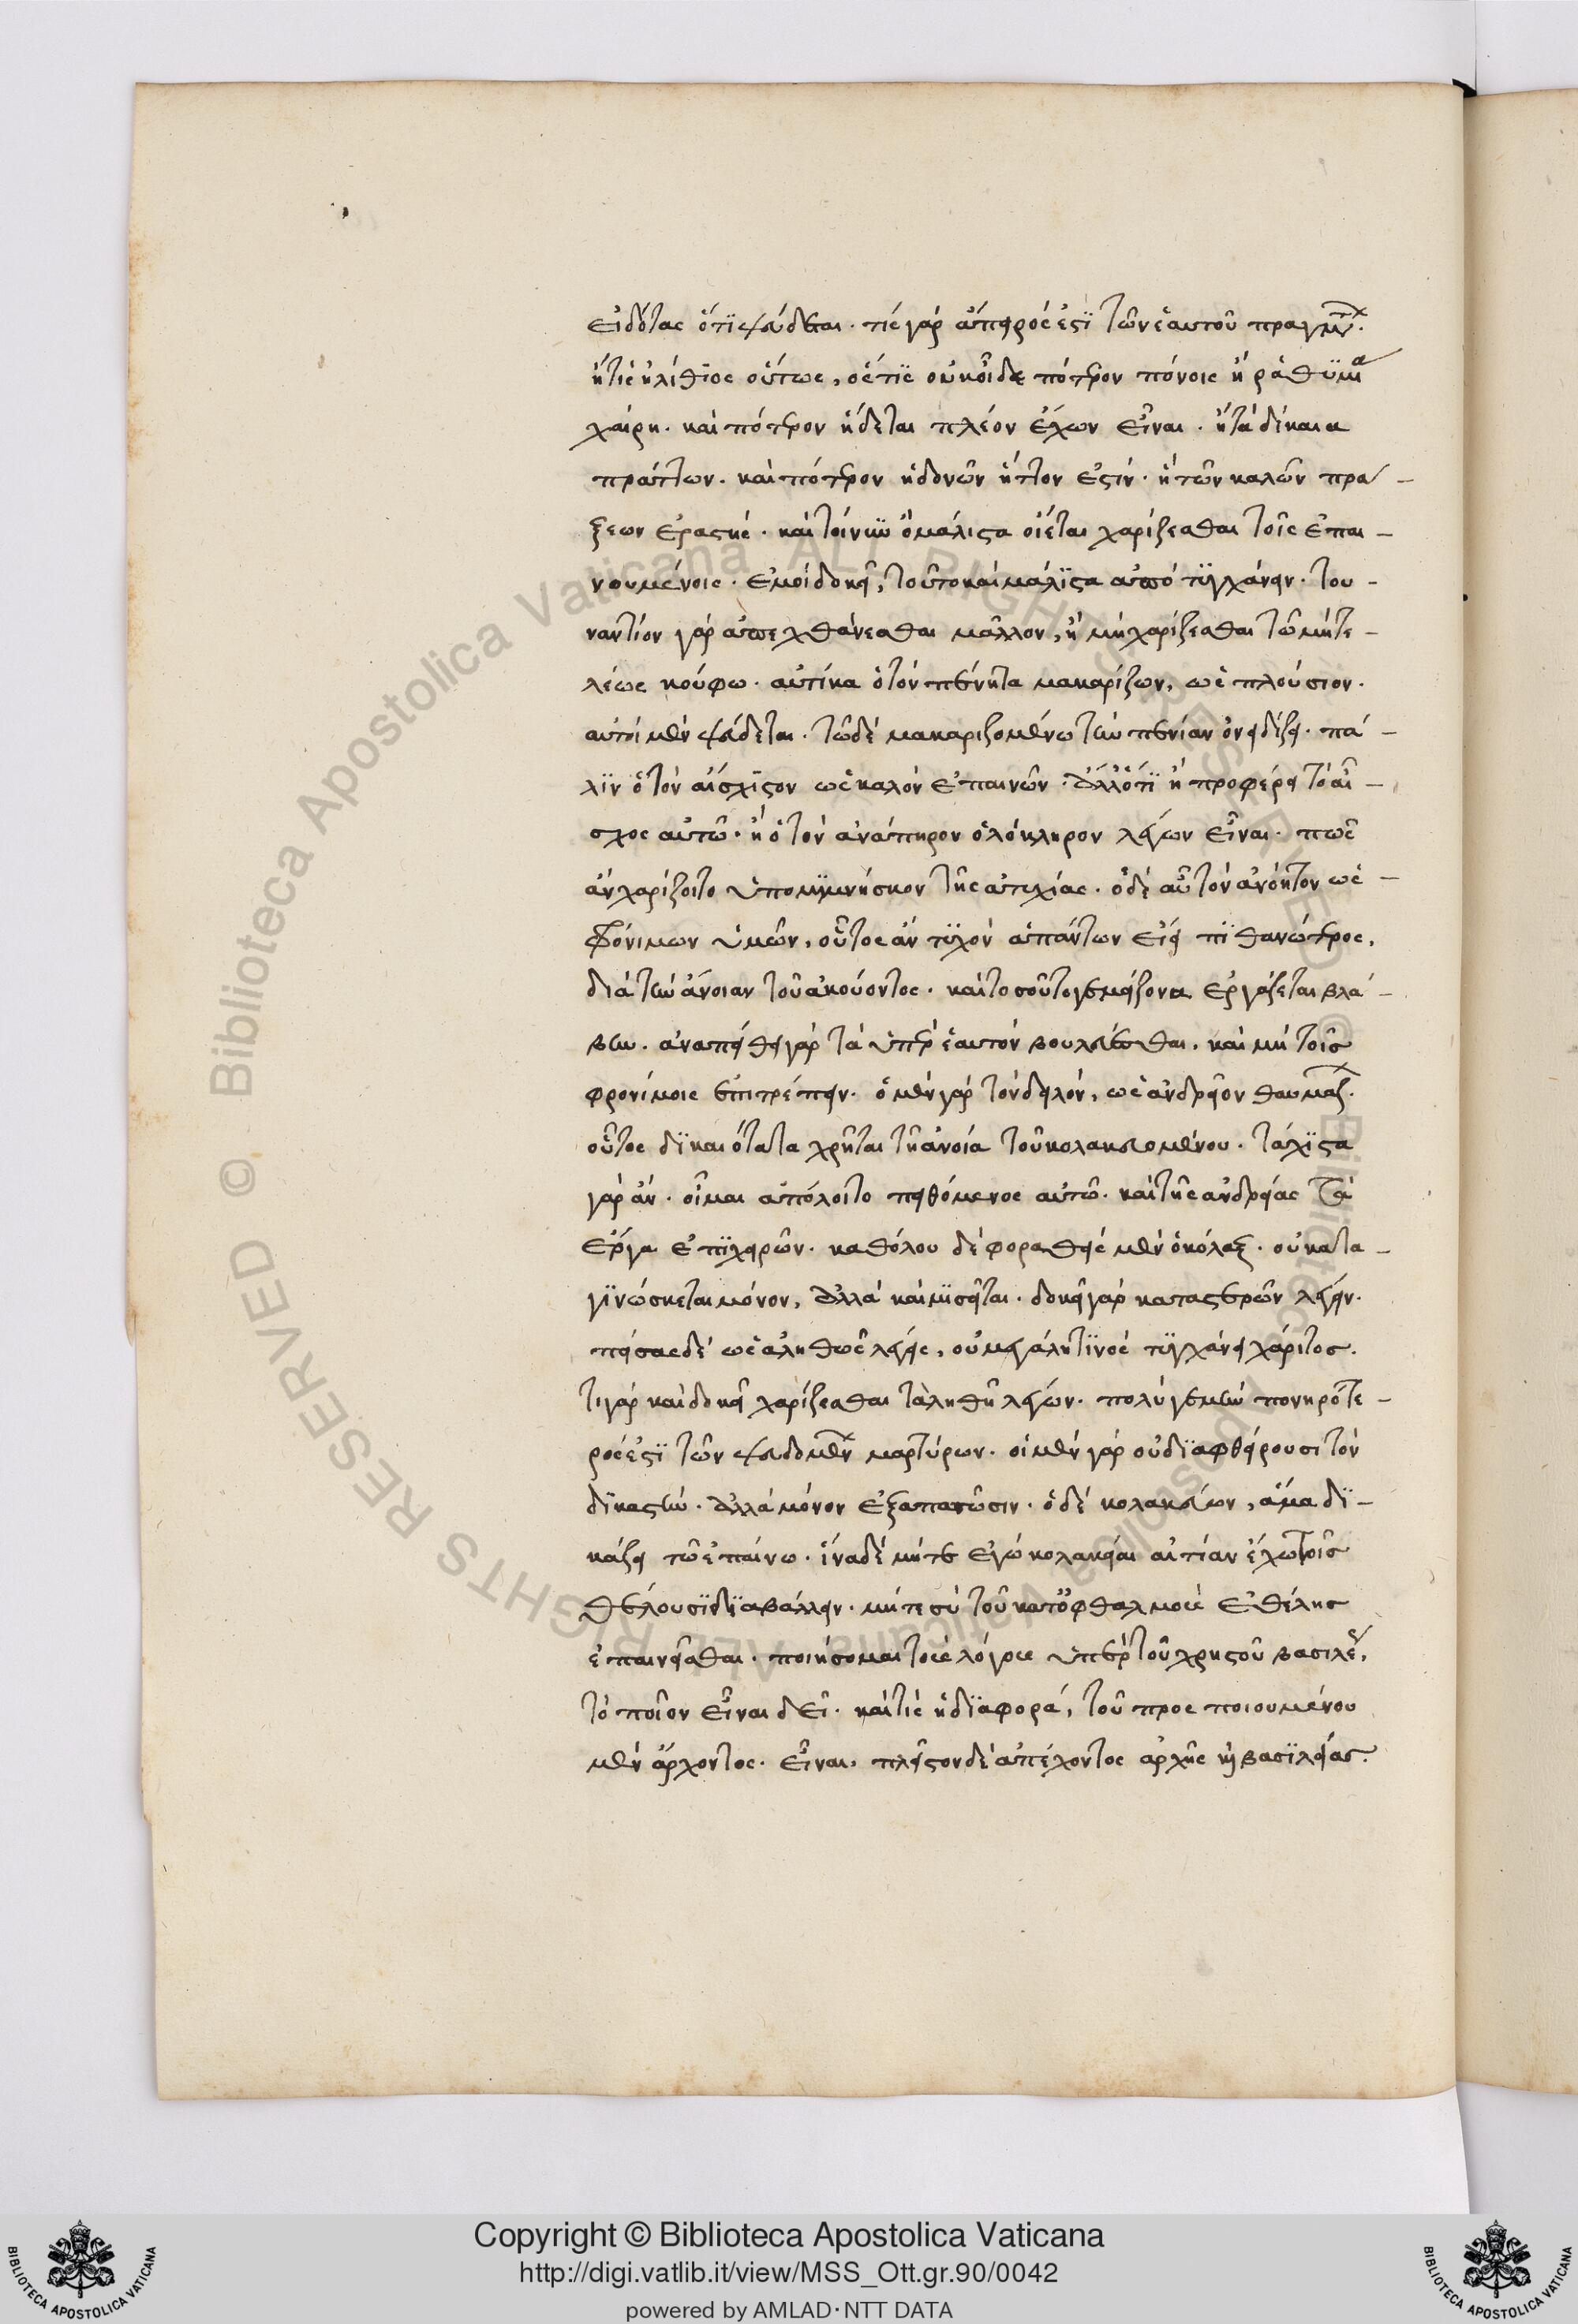 εἰδότας ὅτι ψεύδεται. τίς γὰρ ἄπειρός ἐστι τῶν ἑαυτοῦ πραγμάτων.
ἢ τίς ἠλίθιος οὕτως, ὅστις οὐκ οἶδε πότερον πόνοις ἢ ῥαθυμία
χαίρη. καὶ πότερον ἥδεται πλέον ἔχων εἶναι. ἢ τὰ δίκαια
πράττων. καὶ πότερον ἡδονῶν ἥττον ἐστίν. ἢ τῶν καλῶν πρά-
ξεων ἐραστής. καὶ τοίνυν ὃ μάλιστα οἴεται χαρίζεσθαι τοῖς ἐπαι-
νουμένοις. ἐμοὶ δοκεῖ, τοῦτο καὶ μάλιστα ἀποτυγχάνειν. του-
ναντίον γὰρ ἀπεχθάνεσθαι μᾶλλον, ἢ μὴ χαρίζεσθαι τῶ μὴ τε-
λέως κούφω. αὐτίκα ὁ τὸν πένητα μακαρίζων, ὡς πλούσιον.
αὐτὸς μὲν ψεύδεται. τῶ δὲ μακαριζομένω τὴν πενίαν ὀνειδίζει. πά-
λιν ὁ τὸν αἴσχιστον ὡς καλὸν ἐπαινῶν. ἄλλο τι ἢ προφέρει τὸ αἶ-
σχος αὐτῶ. ἢ ὁ τὸν ἀνάπηρον ὁλόκληρον λέγων εἶναι. πῶς
ἂν χαρίζοιτο ὑπομιμνήσκων τῆς ἀτυχίας. ὁ δὲ αὖ τὸν ἀνόητον ὡς
φρόνιμον ὑμνῶν, οὗτος ἂν τυχὸν ἁπάντων εἴη πιθανώτερος,
διὰ τὴν ἄνοιαν τοῦ ἀκούοντος. καὶ τοσοῦτό γε μείζονα ἐργάζεται βλά-
βην. ἀναπείθει γὰρ τὰ ὑπὲρ ἑαυτὸν βουλεύεσθαι. καὶ μὴ τοῖς
φρονίμοις ἐπιτρέπειν. ὁ μὲν γὰρ τὸν δειλόν, ὡς ἀνδρεῖον θαυμάζ.
οὗτος δικαιότατα χρῆται τῆ ἀνοία τοῦ κολακευομένου. τάχιστα
γὰρ ἄν. οἶμαι ἀπόλοιτο πειθόμενος αὐτῶ. καὶ τῆς ἀνδρείας τὰ
ἔργα ἐπιχειρῶν. καθόλου δὲ φοραθεὶς μὲν ὁ κόλαξ. οὐ κατα-
γινώσκεται μόνον, ἀλλὰ καὶ μισεῖται. δοκεῖ γὰρ κατασ ερῶν λέγειν.
πείσας δὲ ὡς ἀληθῶς λέγεις, οὐ μεγάλης τινὸς τυγχάνει χάριτος.
τί γὰρ καὶ δοκεῖ χαρίζεσθαι τἀληθῆ λέγων. πολὺ γε μὴν πονηρότε-
ρός ἐστι τῶν ψευδομένων μαρτύρων. οἱ μὲν γὰρ οὐ διαφθείρουσι τὸν
δικαστήν. ἀλλὰ μόνον ἐξαπατῶσιν. ὁ δὲ κολακεύων, ἅμα δι-
κάζει τῶ ἐπαίνω. ἵνα δὲ μήτε ἐγὼ κολακείας αἰτίαν ἔχω τοῖς
θέλουσι διαβάλλειν. μήτε σὺ τοῦ κατ' ὀφθαλμοὺς ἐθέλης
ἐπαινεῖσθαι. ποιήσομαι τοὺς λόγους ὑπὲρ τοῦ χρηστοῦ βασιλέως,
τὸ ποῖον εἶναι δεῖ. καὶ τίς ἡ διαφορά, τοῦ προσποιουμένου
μὲν ἄρχοντος. εἶναι, πλεῖστον δὲ ἀπέχοντος ἀρχῆς καὶ βασιλείας.
Copyright © Biblioteca Apostolica Vaticana
http://digi.vatlib.it/view/MSS_Ott.gr.90/0042
powered by AMLAD·NTT DATA